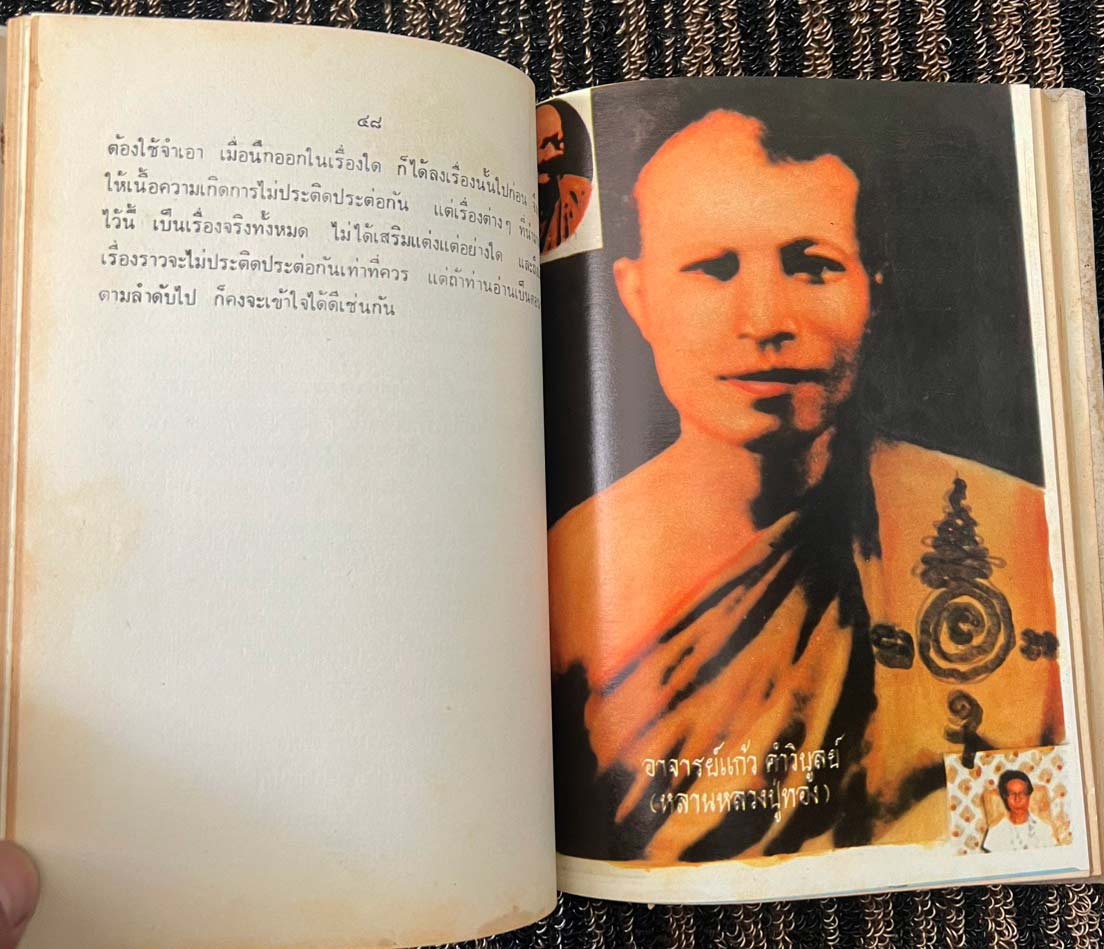 ๔๘
ต้องใช้จำเอา เมื่อนึกออกในเรื่องใด ก็ได้ลงเรื่องนั้นไปก่อน
ให้เนื้อความเกิดการไม่ประติดประต่อกัน แต่เรื่องต่างๆ
ไว้นี้ เป็นเรื่องจริงทั้งหมด ไม่ได้เสริมแต่งแต่อย่างใด
เรื่องราวจะไม่ประติดประต่อกันเท่าที่ควร แต่ถ้าท่านอ่านเป็น
ตามลำดับไป ก็คงจะเข้าใจได้ดีเช่นกัน
อาจารย์แก้ว คำวิบูลย์
(หลานหลวงปู่ทอง)